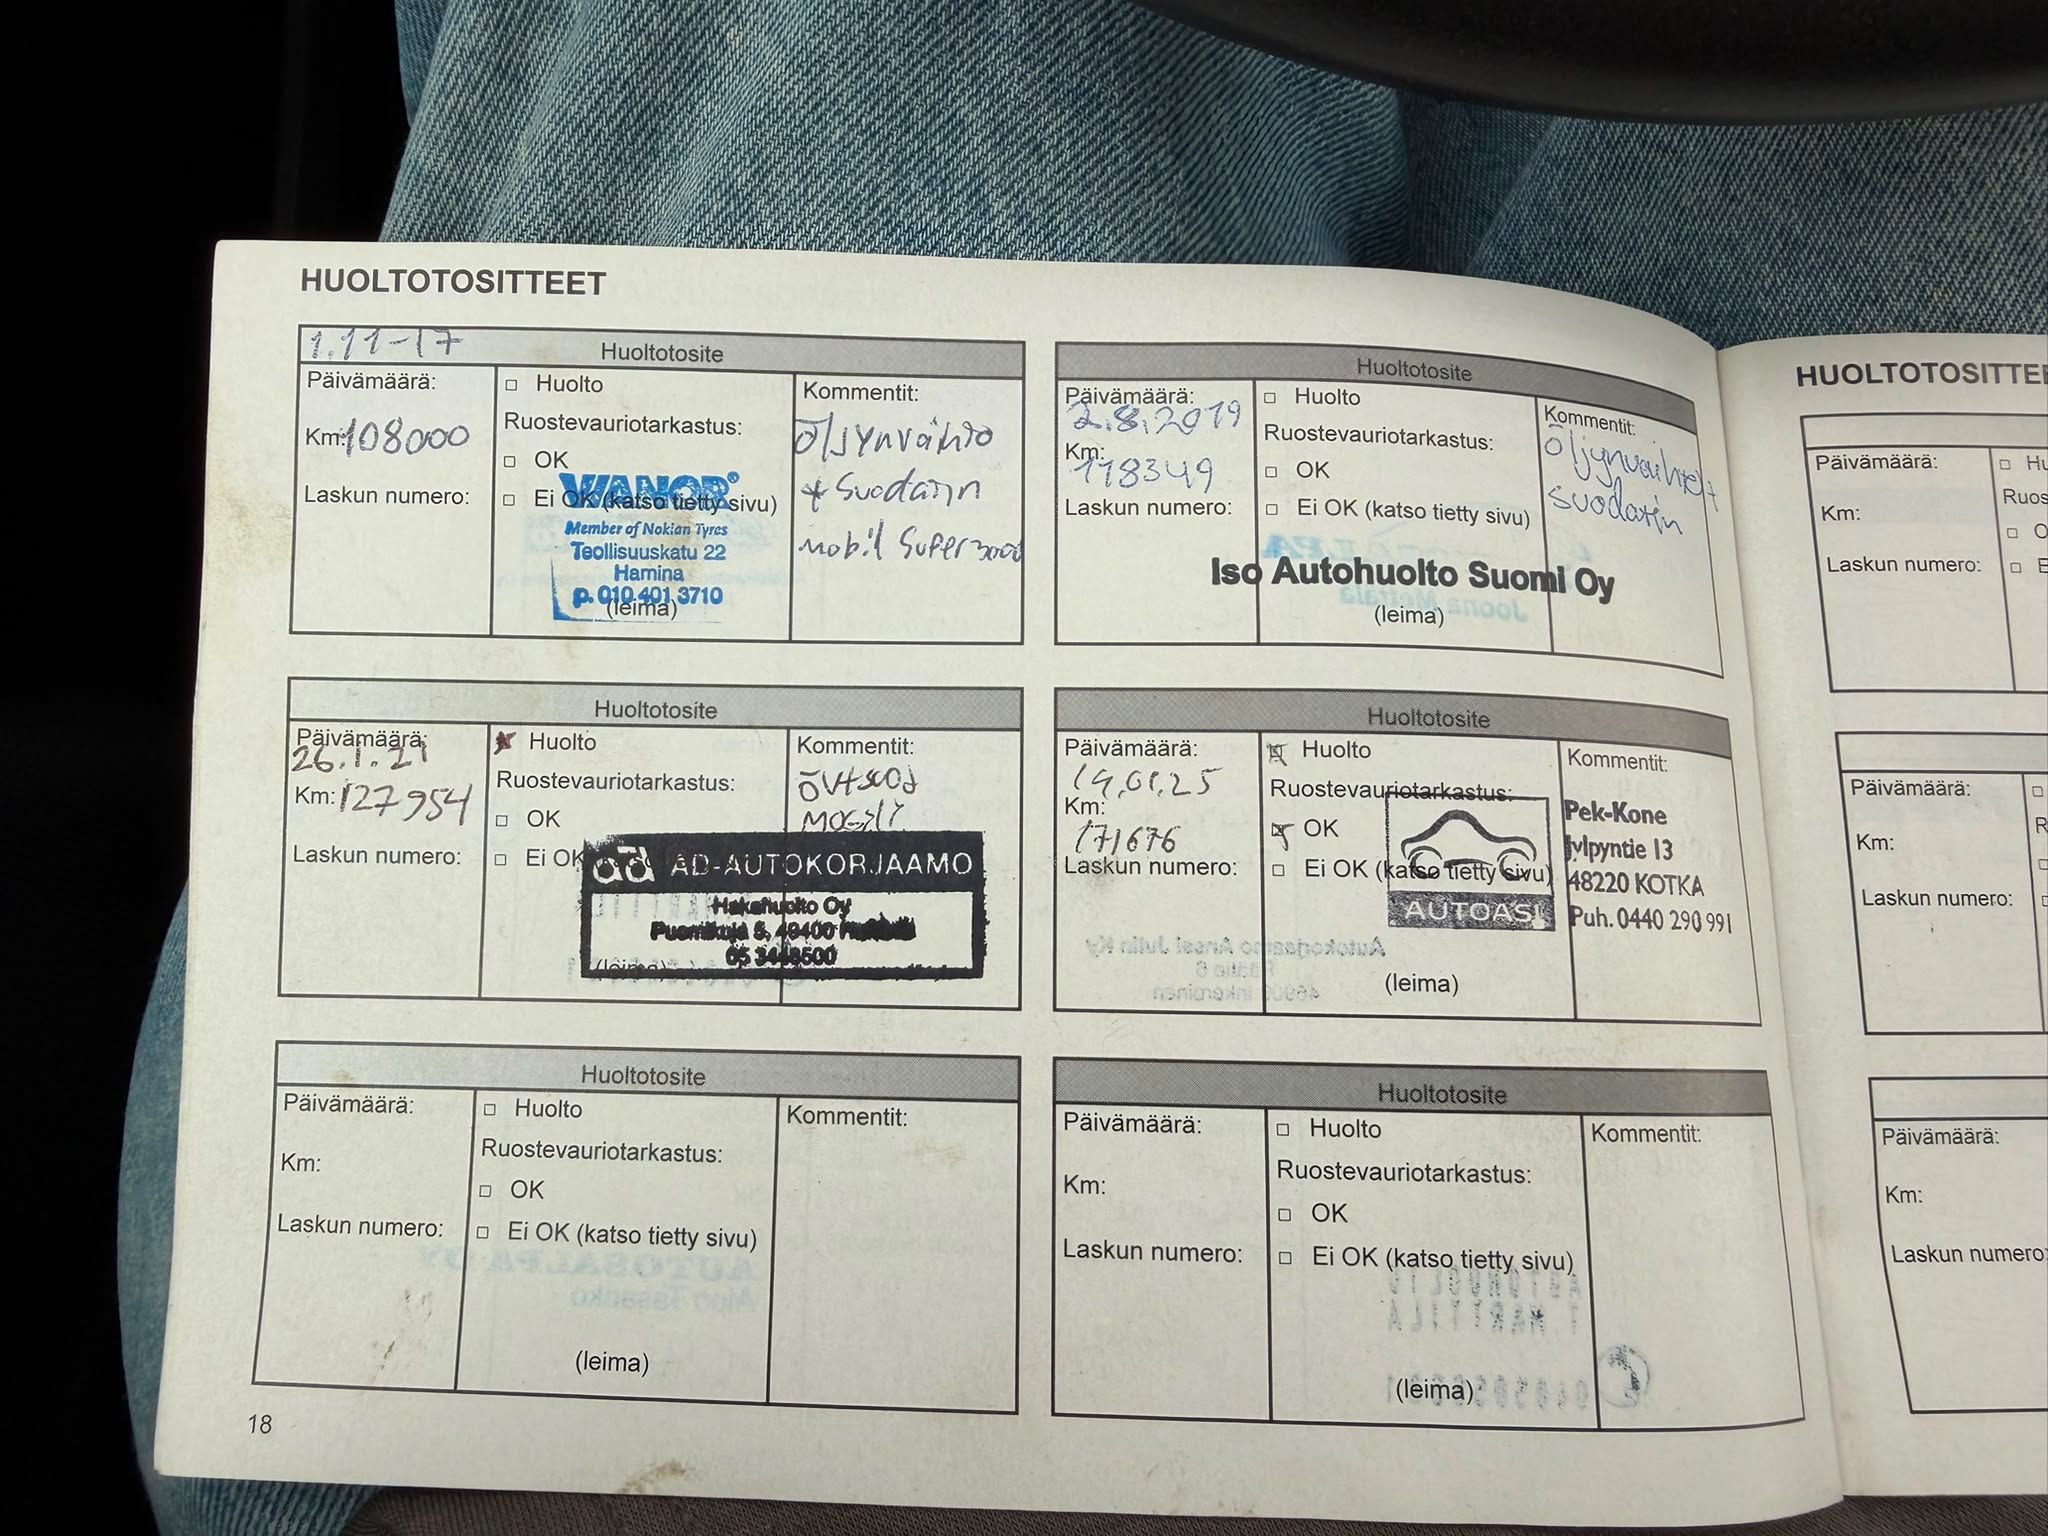 HUOLTOTOSITTEET
1.11-17
Huoltotosite
Päivämäärä:
Km: 108000
Laskun numero:
□ Huolto
Ruostevauriotarkastus:
□ OK
□ Ei OK (katso tietty sivu)
WANOR®
Member of Nokian Tyres
Teollisuuskatu 22
Hamina
p. 010 401 3710
(leima)
Kommentit:
Öljynvaihto
+ Suodatin
mobil Super 3000
Huoltotosite
Päivämäärä:
2.8.2019
Km:
118349
Laskun numero:
□ Huolto
Ruostevauriotarkastus:
□ OK
□ Ei OK (katso tietty sivu)
Iso Autohuolto Suomi Oy
(leima)
Kommentit:
suodatin
Huoltotosite
Päivämäärä:
26.1.21
Km: 127954
Laskun numero:
Huolto
Ruostevauriotarkastus:
□ OK
□ Ei OK
ad AD-AUTOKORJAAMO
Hakahuolto Oy
5, 49400
(leima)
Kommentit:
Huoltotosite
Päivämäärä:
Km:
171676
Laskun numero:
Huolto
Ruostevauriotarkastus:
OK
□ Ei OK (katso tietty sivu)
AUTOASI
(leima)
Kommentit:
Pek-Kone
Jylpyntie 13
48220 KOTKA
Puh. 0440 290 991
Huoltotosite
Päivämäärä:
Km:
Laskun numero:
□ Huolto
Ruostevauriotarkastus:
□ OK
□ Ei OK (katso tietty sivu)
(leima)
Kommentit:
Huoltotosite
Päivämäärä:
Km:
Laskun numero:
□ Huolto
Ruostevauriotarkastus:
□ OK
□ Ei OK (katso tietty sivu)
(leima)
Kommentit:
18
HUOLTOTOSITTEE
Päivämäärä:
Km:
Laskun numero:
Päivämäärä:
Km:
Laskun numero:
Päivämäärä:
Km:
Laskun numero: